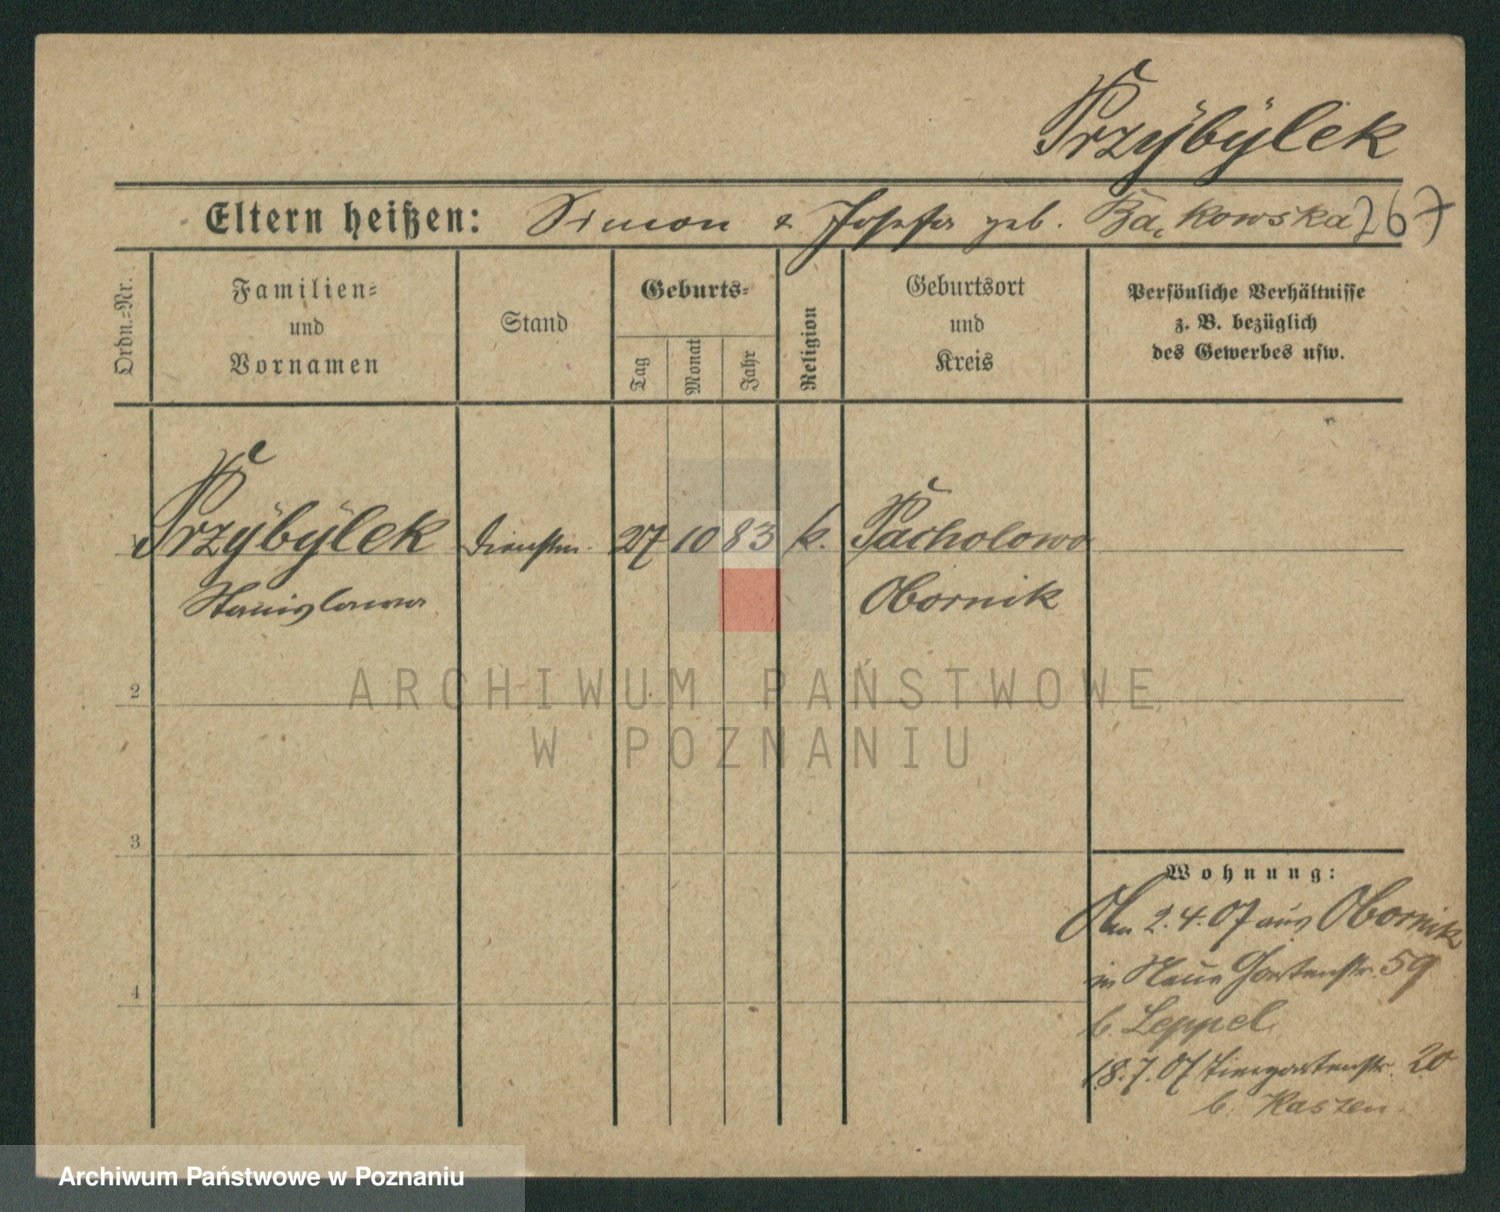 Przÿbÿlek
Eltern heißen: Simon & Josefa geb. Bąkowska 267
Ordn.-Nr.
Familien- und Vornamen
Stand
Geburts-
Tag
Monat
Jahr
Religion
Geburtsort und Kreis
Persönliche Verhältnisse
z. B. bezüglich
des Gewerbes usw.
1 Przÿbÿlek Dienstm. 27 10 83 k. Pacholewo
Stanislawa Obornik
2
3
4
Wohnung:
2.4.07 aus Obornik
in Neue Gartenstr. 59
b. Leppel
18.7.07 Tiergartenstr. 20
b. Kaszen
ARCHIWUM PAŃSTWOWE
W POZNANIU
Archiwum Państwowe w Poznaniu